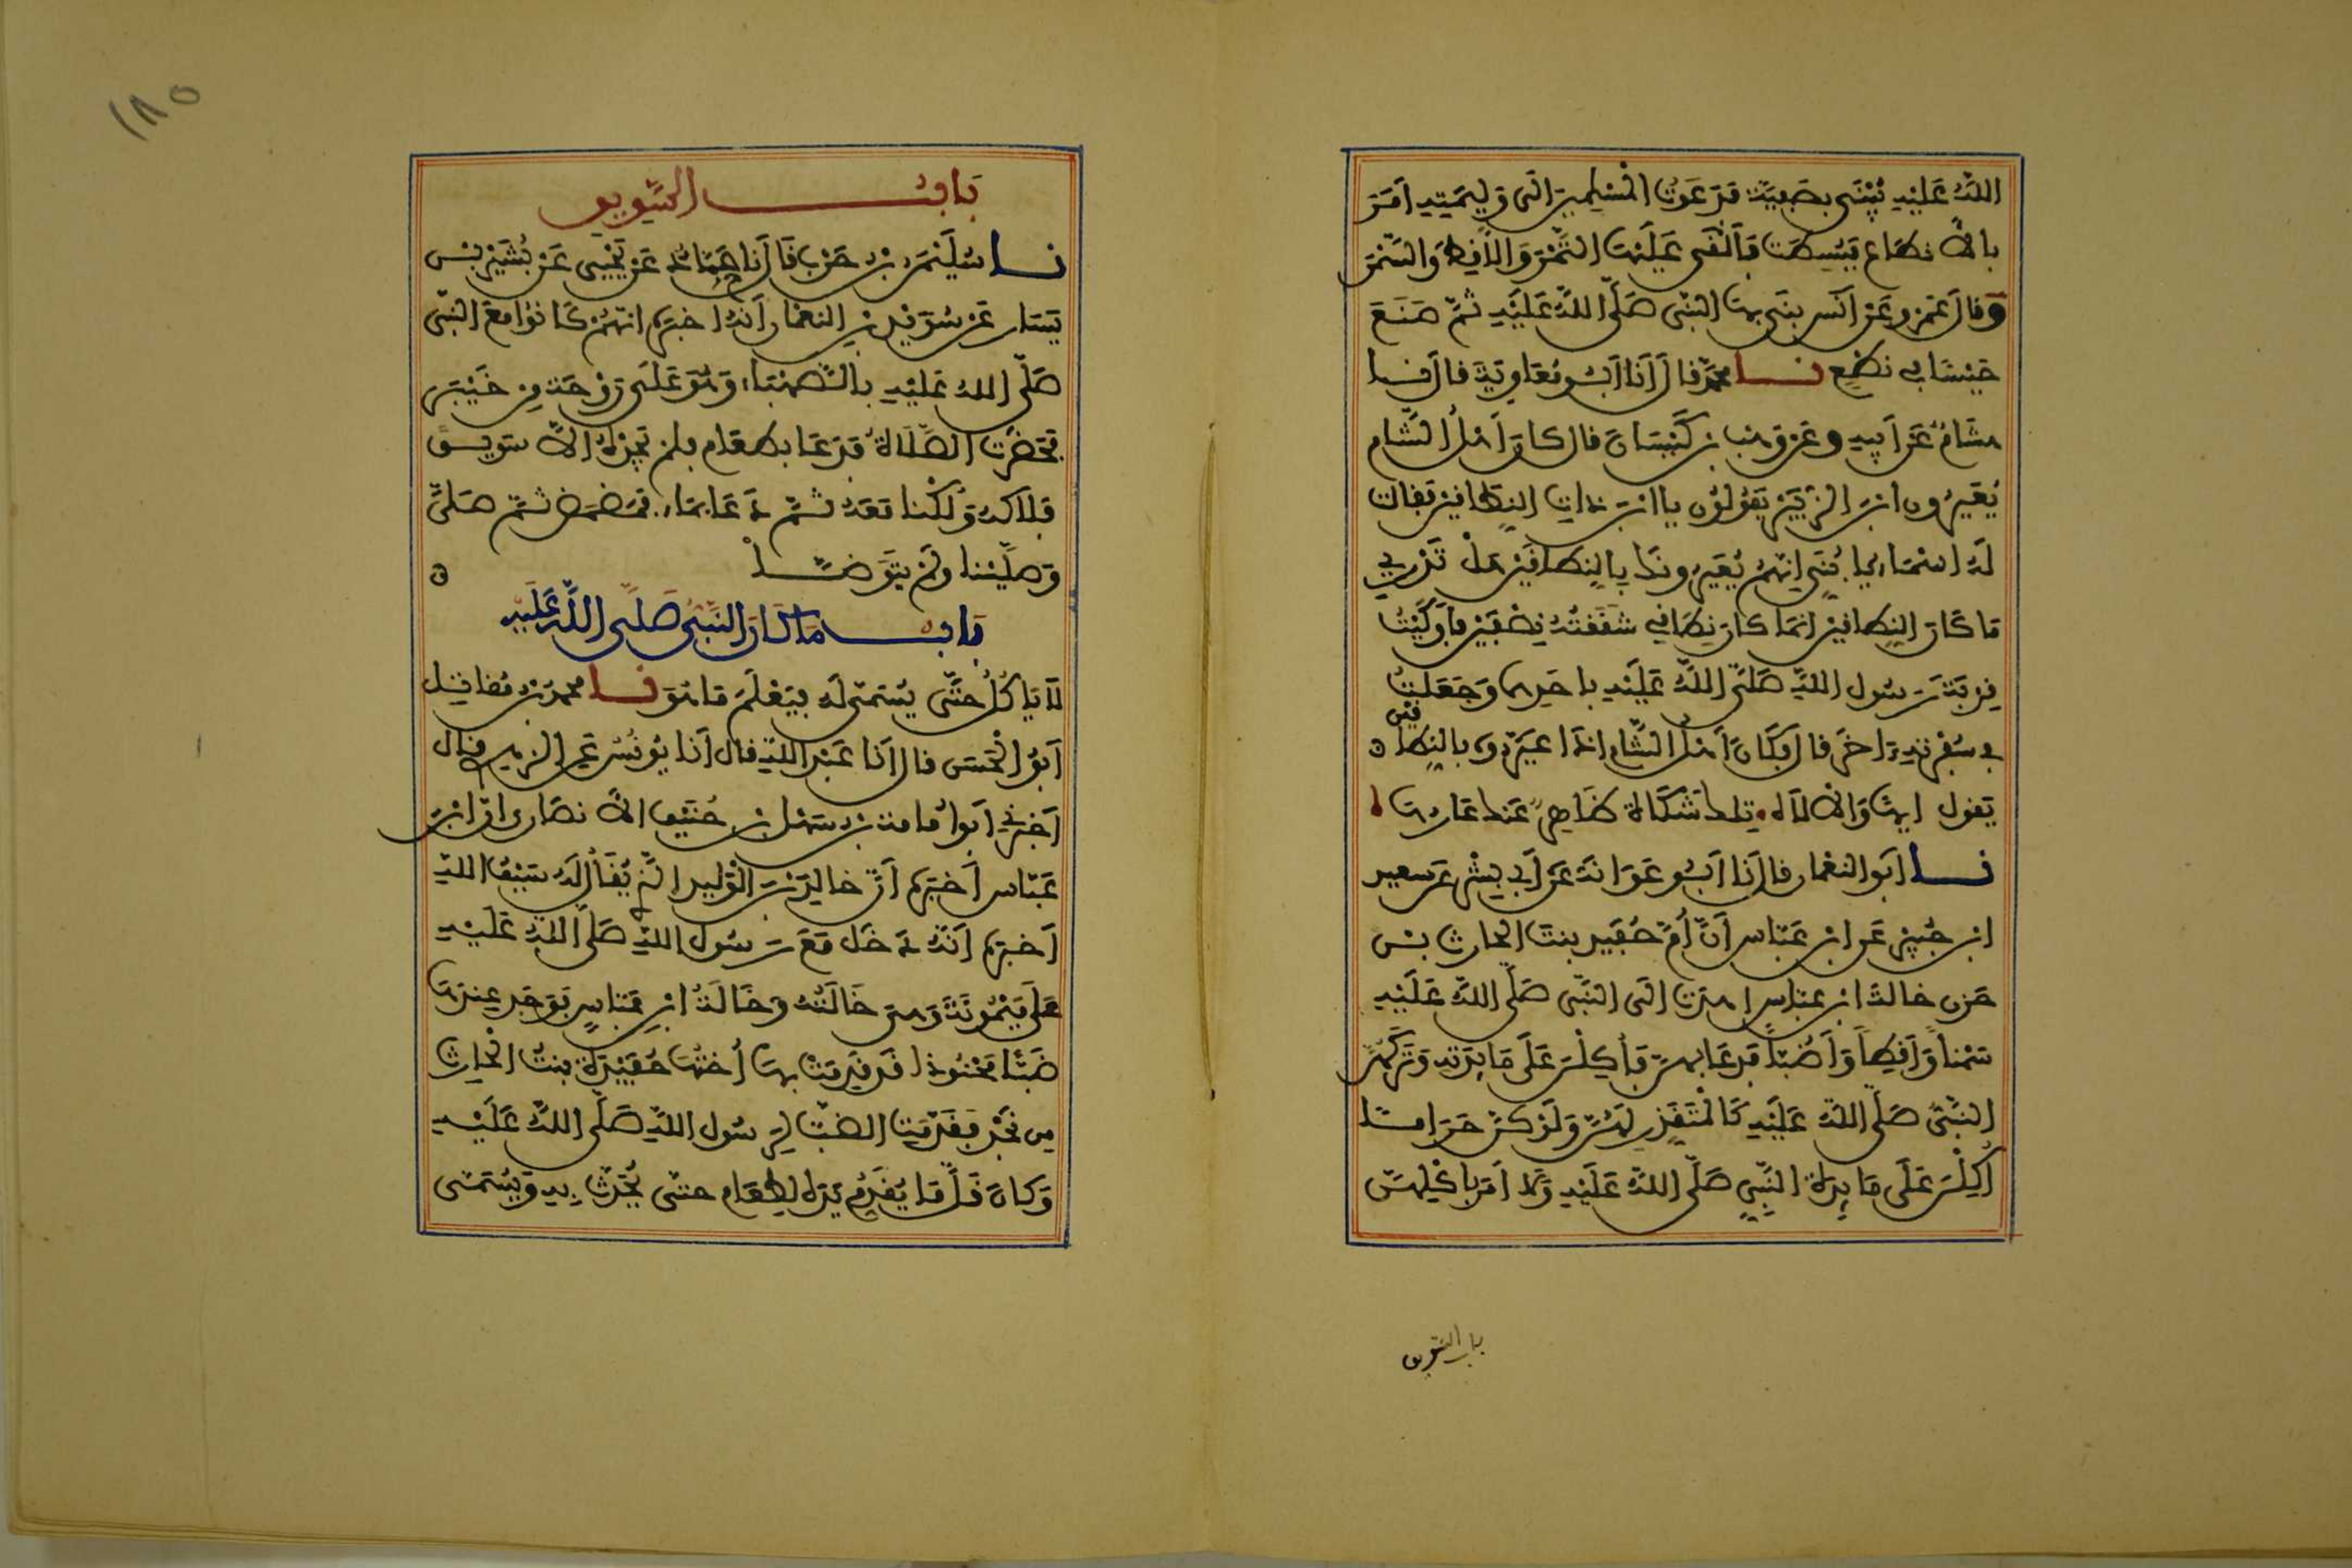 اللَّهُ عَلَيْهِ يُبْنَى بِصَفِيَّةَ فَدَعَوْتُ الْمُسْلِمِينَ إِلَى وَلِيمَتِهِ أَمَرَ
بالأنطاع فَبُسِطَتْ فَأُلْقِيَ عَلَيْهَا التَّمْرُ وَالأَقِطُ وَالسَّمْنُ
وقال عَمْرٌو عَنْ أَنَسٍ بَنَى بِهَا النَّبِيُّ صَلَّى اللَّهُ عَلَيْهِ ثُمَّ صَنَعَ
حَيْسًا في نِطَعٍ نا محمد قال أَنَا أَبُو مُعَاوِيَةَ قال نا
هشامٌ عَنْ أبيه وعَنْ وهب بن كَيْسَانَ قال كانَ أَهْلُ الشَّامِ
يُعَيِّرُونَ ابْنَ الزُّبَيْرِ يَقُولُونَ يا ابْنَ ذات النِّطَاقَيْنِ فقالت
لَهُ اسْمَاء يا بُنَيَّ إِنَّهُمْ يُعَيِّرُونَكَ بِالنِّطَاقَيْنِ هَلْ تَدْرِي
مَا كَانَ النِّطَاقَيْنِ إنما كان نِطَاقِي شَقَقْتُهُ نِصْفَيْنِ فَأَوْكَيْتُ
قِرْبَةَ رَسُول اللَّهِ صَلَّى اللَّهُ عَلَيْهِ بِأَحَدِهِمَا وَجَعَلْتُ
في سُفْرَتِهِ آخَرَ قال فَكَانَ أَهْلُ الشَّام إذَا عَيَّرُوه بالنِّطَاقَيْنِ ه
يَقول إيها وَالالَاه تلك شَكَاةٌ ظَاهِرٌ عَنك عَارُهَا
نا أَبُو النُّعْمَان قال أَنَا أَبُو عَوَانَةَ عَنْ أَبِي بِشْرٍ عَنْ سعيد
ابن جُبَيْرٍ عَن ابْنِ عَبَّاسٍ أَنَّ أُمَّ حُفَيْد بنتَ الحارث بن
حَزْن خالةَ ابن عَبَّاسٍ اهدت إِلَى النَّبِيِّ صَلَّى اللَّهُ عَلَيْهِ
سَمْناً وَأَقِطاً وَأَضُبّاً فَدَعَا بِهِنَّ فَأُكِلْنَ عَلَى مَائِدَتِهِ وَتَرَكَهُنَّ
النَّبِيُّ صَلَّى اللَّهُ عَلَيْهِ كَالْمُتَقَذِّرِ لَهُنَّ وَلَوْ كنَّ حَرَاماً
أُكِلْنَ عَلَى مَائِدَةِ النَّبِيِّ صَلَّى اللَّهُ عَلَيْهِ وَلا أَمَرَ بِأَكْلِهِنَّ
باب السّويق
١٨٥
بَابُ السَّوِيقِ
نا سُلَيْمَنُ بْنُ حَرْبٍ قَالَ أَنَا حَمَّادٌ عَنْ يَحْيَى عَنْ بُشَيْرِ بْنِ
يَسَارٍ عَنْ سُوَيْدِ بْنِ النُّعْمَانِ أَنَّهُ أَخْبَرَهُ انَّهُمْ كَانُوا مَعَ النَّبِيِّ
صَلَّى اللهُ عَلَيْهِ بِالصَّهْبَاءِ وَهُوَ عَلَى رَوْحَةٍ مِنْ خَيْبَرَ
فَحَضَرَتِ الصَّلَاةُ فَدَعَا بطَعَامٍ فَلَمْ يَجِدْهُ إِلاَّ سَوِيقًا
فَلَاكَهُ وَلُكْنَا مَعَهُ ثُمَّ دَعَا بِمَاءٍ فمَضْمَضَ ثُمَّ صَلَّى
وَصَلَّيْنَا وَلَمْ يَتَوَضَّأْ ه
بَابُ مَا كَانَ النَّبِيُّ صَلَّى اللَّهُ عَلَيْهِ
لَا يَأْكُلُ حَتَّى يُسَمَّى لَه فيَعْلَمَ مَا هُوَ نا محمد بْن مُقَاتِل
أَبُو الْحَسَن قال انَا عَبْدُ اللهِ قال أَنَا يُونُسُ عَنِ الزهري قال
أَخْبَرَنِي أَبُو أُمَامَةَ بْنُ سَهْلِ بْنِ حُنَيْفٍ الأَنْصَارِيُّ انَّ ابْنَ
عَبَّاسٍ أَخْبَرَهُ أَنَّ خَالِدَ بْنَ الْوَلِيدِ الَّذِي يُقَالُ لَهُ سَيْفُ اللهِ
أَخبَرَهُ أَنَّهُ دَخَلَ مَعَ رَسُول اللهِ صَلَّى اللَّهُ عَلَيْهِ
عَلَى مَيْمُونَةَ وَهِيَ خَالَتُهُ وخَالَةُ ابْنِ عَبَّاسٍ فَوَجَدَ عِنْدَهَا
ضَبّاً مَحْنُوذاً قَد قَدِمَتْ بِهَا أُخْتُهَا حُفَيْدَةُ بنتُ الْحَارِثِ
مِن نَجْدٍ فَقَدَّمَتِ الضَّبَّ لِرَسُول اللهِ صَلَّى اللَّهُ عَلَيْهِ
وَكانَ قَلَّمَا يُقَدِّمُ يَدَهُ لِطَعَامٍ حَتَّى يُحَدَّثَ بِهِ وَيُسَمَّى